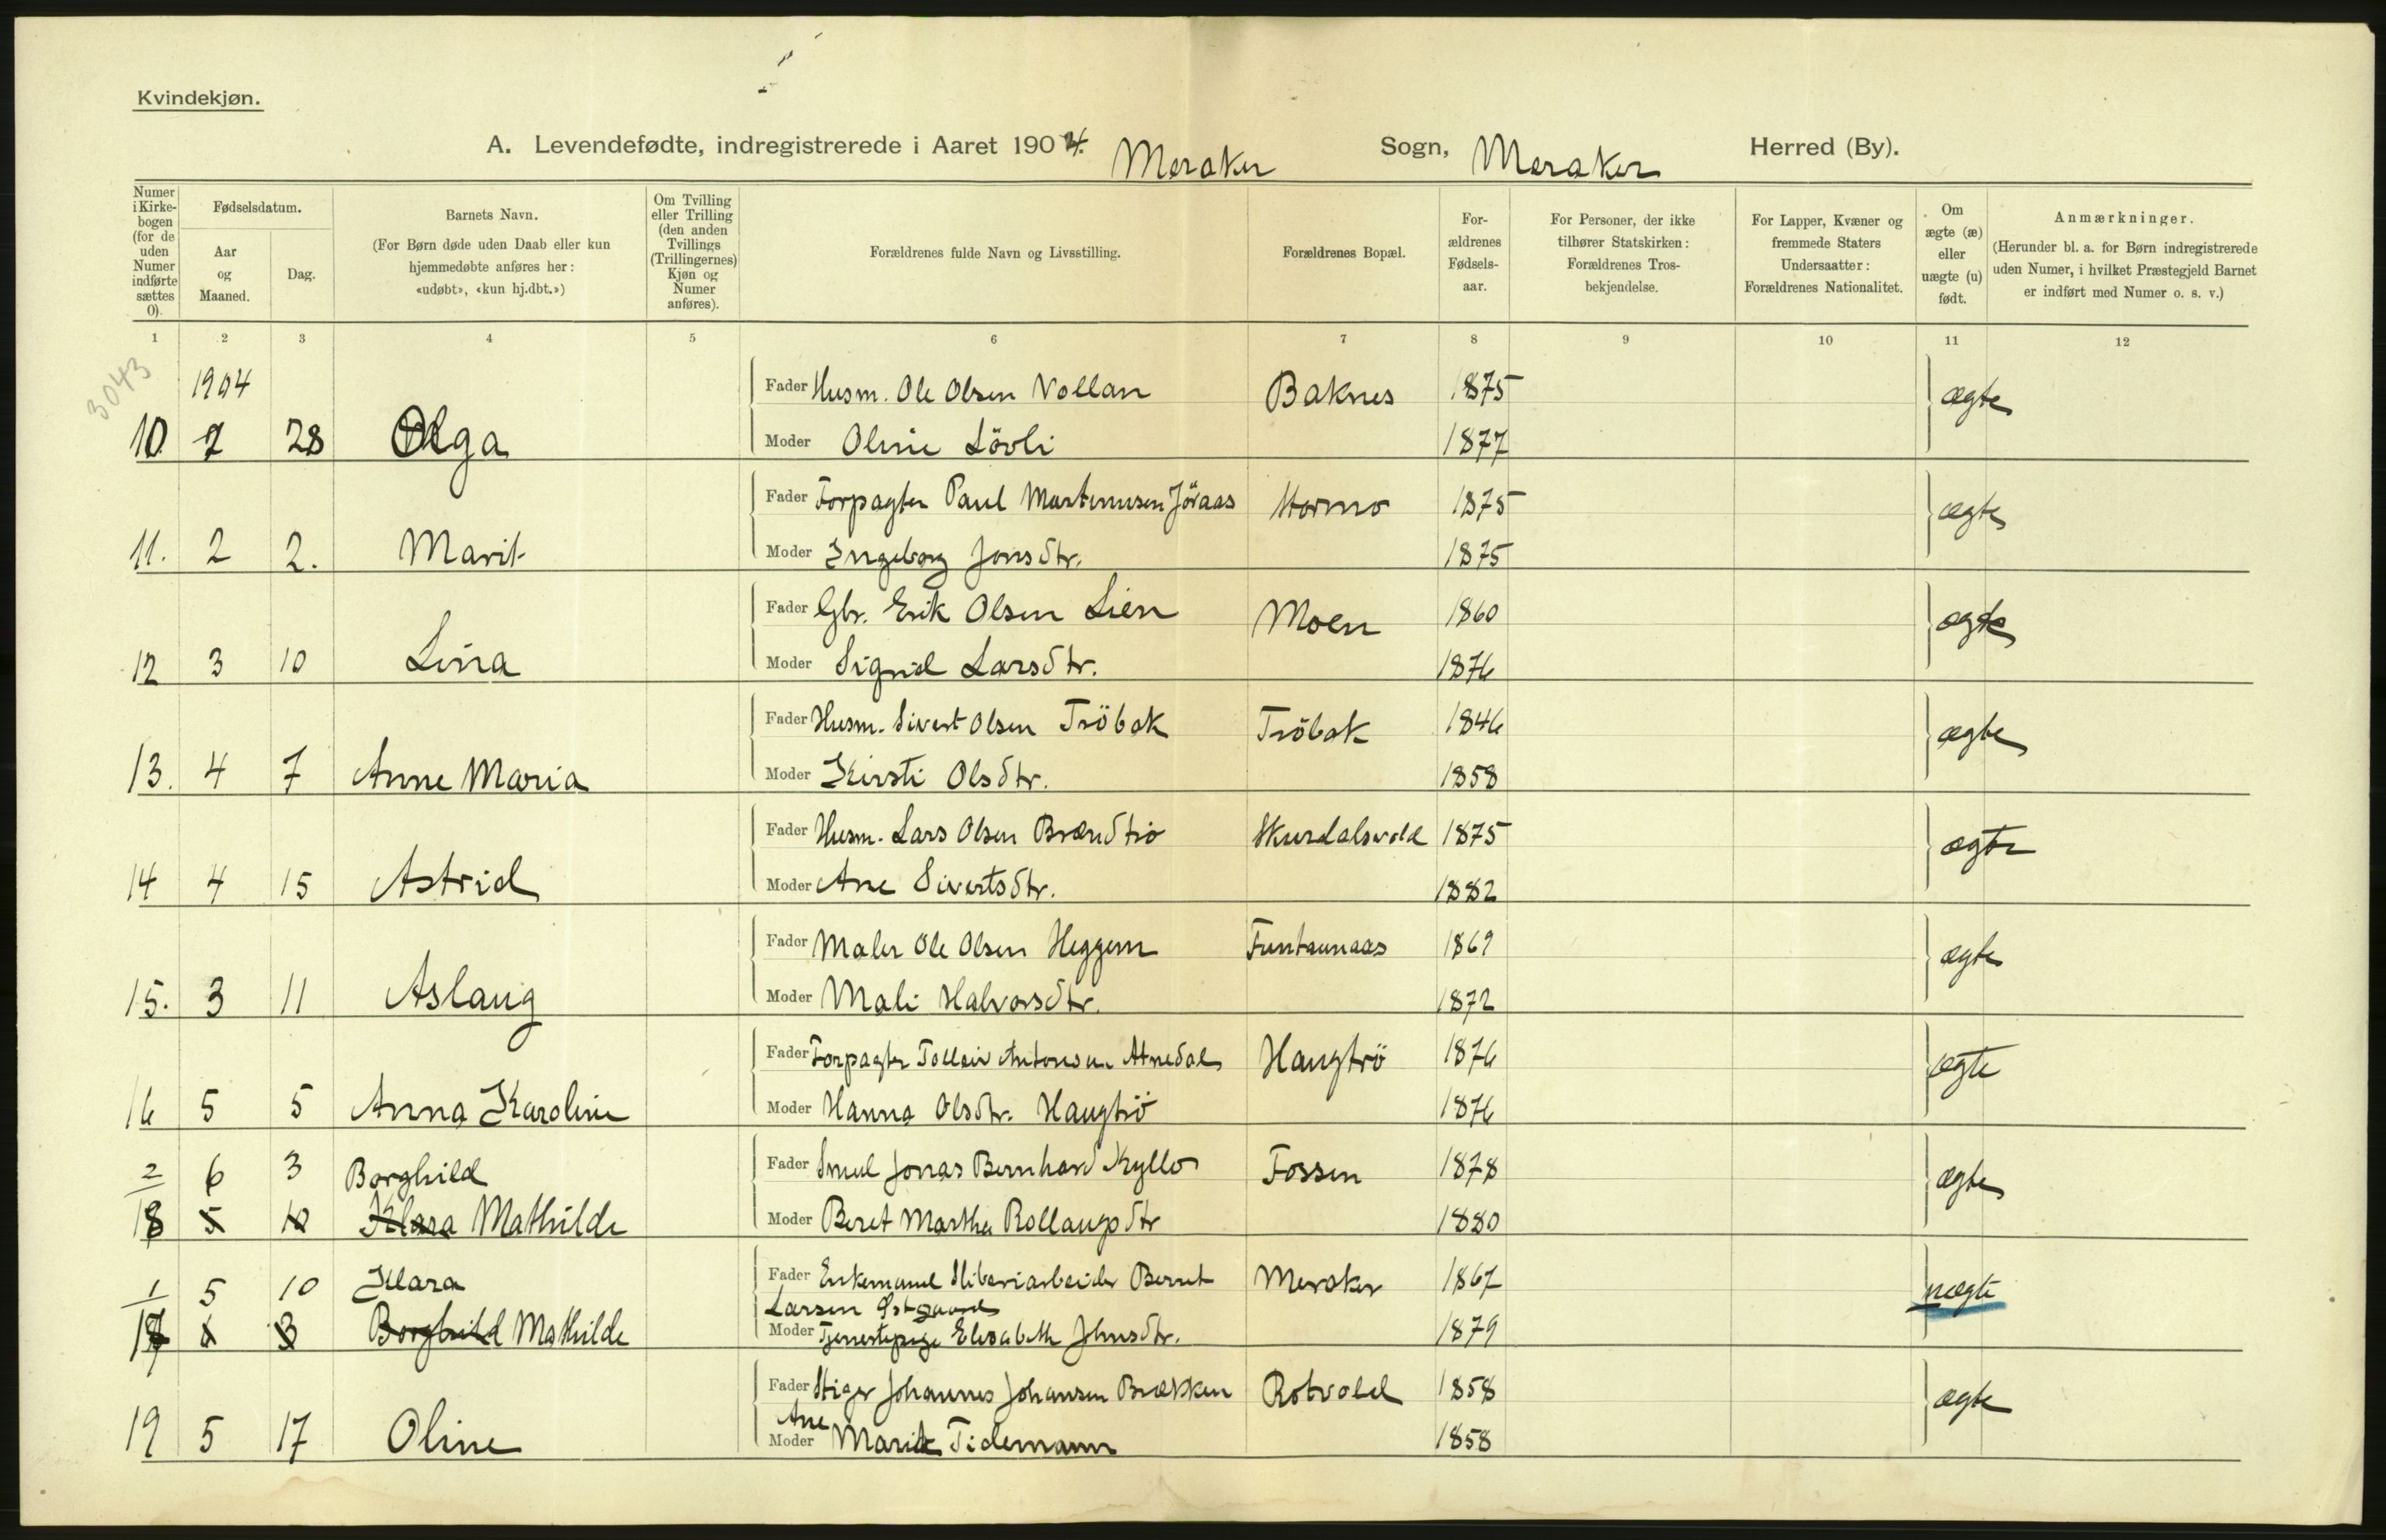 Kvindekjøn.
A. Levendefødte, indregistrerede i Aaret 1904. Meraker Sogn, Meraker Herred (By).
Numer i Kirkebogen (for de uden Numer indførte sættes 0).
Fødselsdatum.
Aar og Maaned.
Dag.
Barnets Navn.
(For Børn døde uden Daab eller kun hjemmedøbte anføres her: «udøbt», «kun hj.dbt.»)
Om Tvilling eller Trilling (den anden Tvillings (Trillingernes) Kjøn og Numer anføres).
Forældrenes fulde Navn og Livsstilling.
Forældrenes Bopæl.
Forældrenes Fødselsaar.
For Personer, der ikke tilhører Statskirken: Forældrenes Trosbekjendelse.
For Lapper, Kvæner og fremmede Staters Undersaatter: Forældrenes Nationalitet.
Om ægte (æ) eller uægte (u) født.
Anmærkninger.
(Herunder bl. a. for Børn indregistrerede uden Numer, i hvilket Præstegjeld Barnet er indført med Numer o. s. v.)
1 2 3 4 5 6 7 8 9 10 11 12
3043
1904
Fader Husm. Ole Olsen Vollan Baknes 1875 ægte
10 2 28 Olga Moder Oline Lövli 1877
Fader Forpagter Paul Martinusen Jöraas Stormo 1875 ægte
11. 2 2. Marit Moder Ingeborg Jonsdtr. 1875
Fader Gbr. Erik Olsen Lien Moen 1860 ægte
12 3 10 Lina Moder Sigrid Larsdtr. 1876
Fader Husm. Sivert Olsen Tröbak Tröbak 1846 ægte
13. 4 7 Anne Maria Moder Kirsti Olsdtr. 1858
Fader Husm. Lars Olsen Brændtrø Skurdalsvold 1875 ægte
14 4 15 Astrid Moder Ane Sivertsdtr. 1882
Fader Maler Ole Olsen Heggem Funtaunaas 1869 ægte
15. 3 11 Aslaug Moder Mali Halvorsdtr. 1872
Fader Forpagter Tolleiv Antonsen Atnedal Haugtrö 1876 ægte
16 5 5 Anna Karoline Moder Hanna Olsdtr. Haugtrö 1876
2 6 3 Borghild Fader Smed Jonas Bernhard Kyllo Fossen 1878 ægte
18 5 10 Klara Mathilde Moder Beret Martha Rollaugsdtr 1880
1 5 10 Klara Fader Enkemand Sliberiarbeider Bernt Meraker 1867 uægte
Larsen Østgaard
17 6 3 Borghild Mathilde Moder Tjenestepige Elisabeth Johnsdtr. 1879
Fader Stiger Johannes Johansen Brækken Rotvold 1858 ægte
Ane
19 5 17 Oline Moder Marit Tidemann 1858